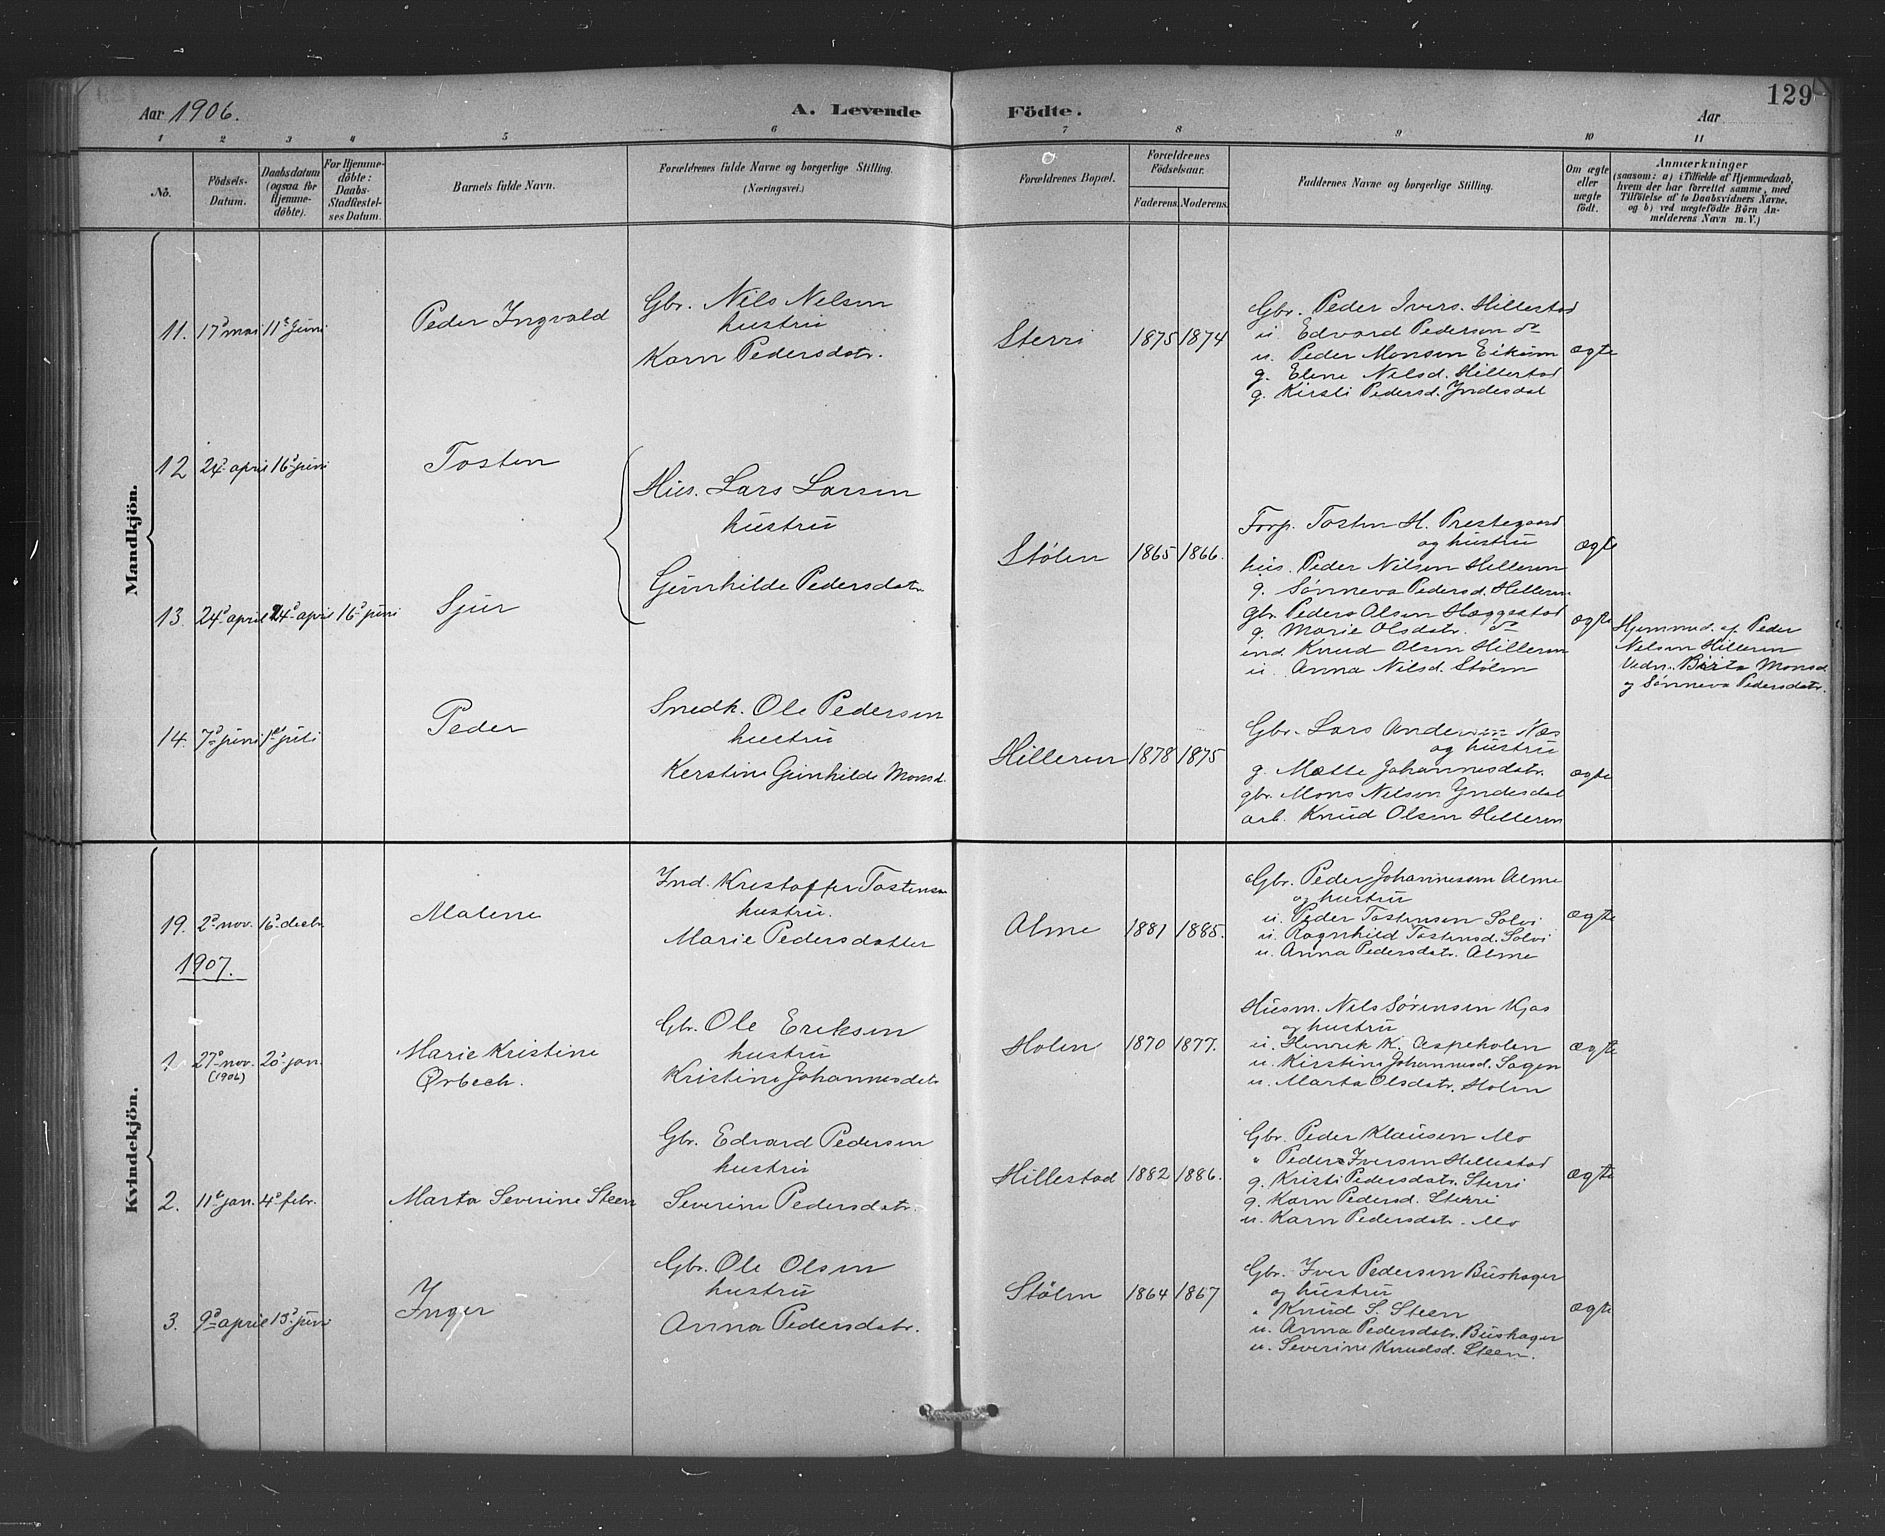 129
Aar 1906.
A. Levende Födte.
Aar
1 2 3 4 5 6 7 8 9 10 11
No.
Födsels-Datum.
Daabsdatum (ogsaa for Hjemme-döbte).
For Hjemme-döbte: Daabs-Stadfæstel-ses Datum.
Barnets fulde Navn.
Forældrenes fulde Navne og borgerlige Stilling.
(Næringsvei.)
Forældrenes Bopæl.
Forældrenes Födselsaar.
Faderens. Moderens.
Faddernes Navne og borgerlige Stilling.
Om ægte eller uægte födt.
Anmærkninger
(saasom: a) i Tilfælde af Hjemmedaab,
hvem der har forrettet samme, med
Tilföielse af to Daabsvidners Navne,
og b) ved uægtefödte Börn An-
melderens Navn m. V.)
Mandkjön.
11. 17d mai 11te juni Peder Ingvald
Gbr. Nils Nelsen
hustru
Karn Pedersdatr.
Sterri 1875 1874
Gbr. Peder Ivers. Hillestad
u. Edvard Pedersen do
u. Peder Monsen Eikum
g. Elene Nilsd. Hillestad
g. Kirsti Pedersd. Yndesdal
ægte
12 24d april 16d juni Tosten
Hus. Lars Larsen
hustru
Gunhilde Pedersdatr
Stølen 1865 1866.
Forp. Tosten H. Prestegaard
og hustru
hus. Peder Nilsen Hilleren
g. Sønneva Pedersd. Hilleren
gbr. Peder Olsen Hæggestad
g. Marie Olsdatr. do
ind. Knud Olsen Hilleren
u. Anna Nilsd. Stølen
ægte
13. 24d april 24d april 16d juni Sjur
ægte
Hjemmed. af Peder
Nelsen Hilleren
Vidn. Birta Monsd
og Sønneva Pedersdatr.
14. 7d juni 1ste juli Peder
Snedk. Ole Pedersen
hustru
Kerstine Gunhilde Monsd.
Hilleren 1878 1875
Gbr. Lars Andersen Næs
og hustru
g. Mette Johannesdatr.
gbr. Mons Nelsen Yndesdal
arb. Knud Olsen Hilleren
ægte
Kvindekjön.
19. 2d nov. 16d decbr. Malene
Ind. Kristoffer Tostensen
hustru.
Marie Pedersdatter
Alme 1881 1885.
Gbr. Peder Johannesen Alme
og hustru
u. Peder Tostensen Solvi
u. Ragnhild Tostensd. Solvi
u. Anna Pedersdatr. Alme
ægte
1907.
1. 27d nov. (1906) 20d jan. Marie Kristine
Ørbech.
Gbr. Ole Eriksen
hustru
Kristine Johannesdatr
Holen 1870 1877.
Husm. Nils Sørensen Kjos
og hustru
u. Henrik K. Aspeholen
u. Kirstine Johannesd. Sogen
u. Marta Olsdatr. Holen
ægte
2. 11te jan. 4d febr. Marta Severine Steen
Gbr. Edvard Pedersen
hustru
Severine Pedersdatr.
Hillestad 1882 1886.
Gbr. Peder Klausen Mo
" Peder Iversen Hillestad
g. Kristi Pedersdatr. Sterri
g. Karn Pedersd. Sterri
u. Karn Pedersdatr. Mo
ægte
3. 9de april 15d juni Inger
Gbr. Ole Olsen
hustru
Anna Pedersdatr.
Stølen 1864 1867
Gbr. Iver Pedersen Buskager
og hustru
" Knud S. Steen
u. Anna Pedersdatr. Buskager
u. Severine Knudsd. Steen.
ægte